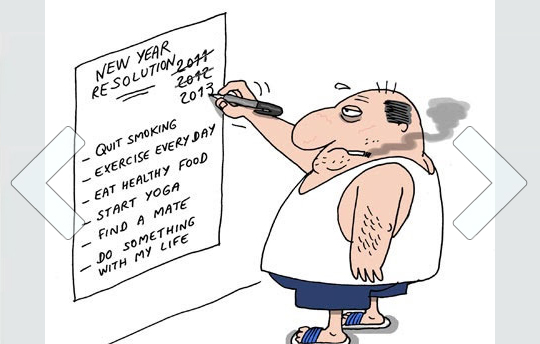 NEW YEAR
RESOLUTION 2011
2012
2013
- QUIT SMOKING
- EXERCISE EVERYDAY
- EAT HEALTHY FOOD
- START YOGA
- FIND A MATE
- DO SOMETHING
WITH MY LIFE